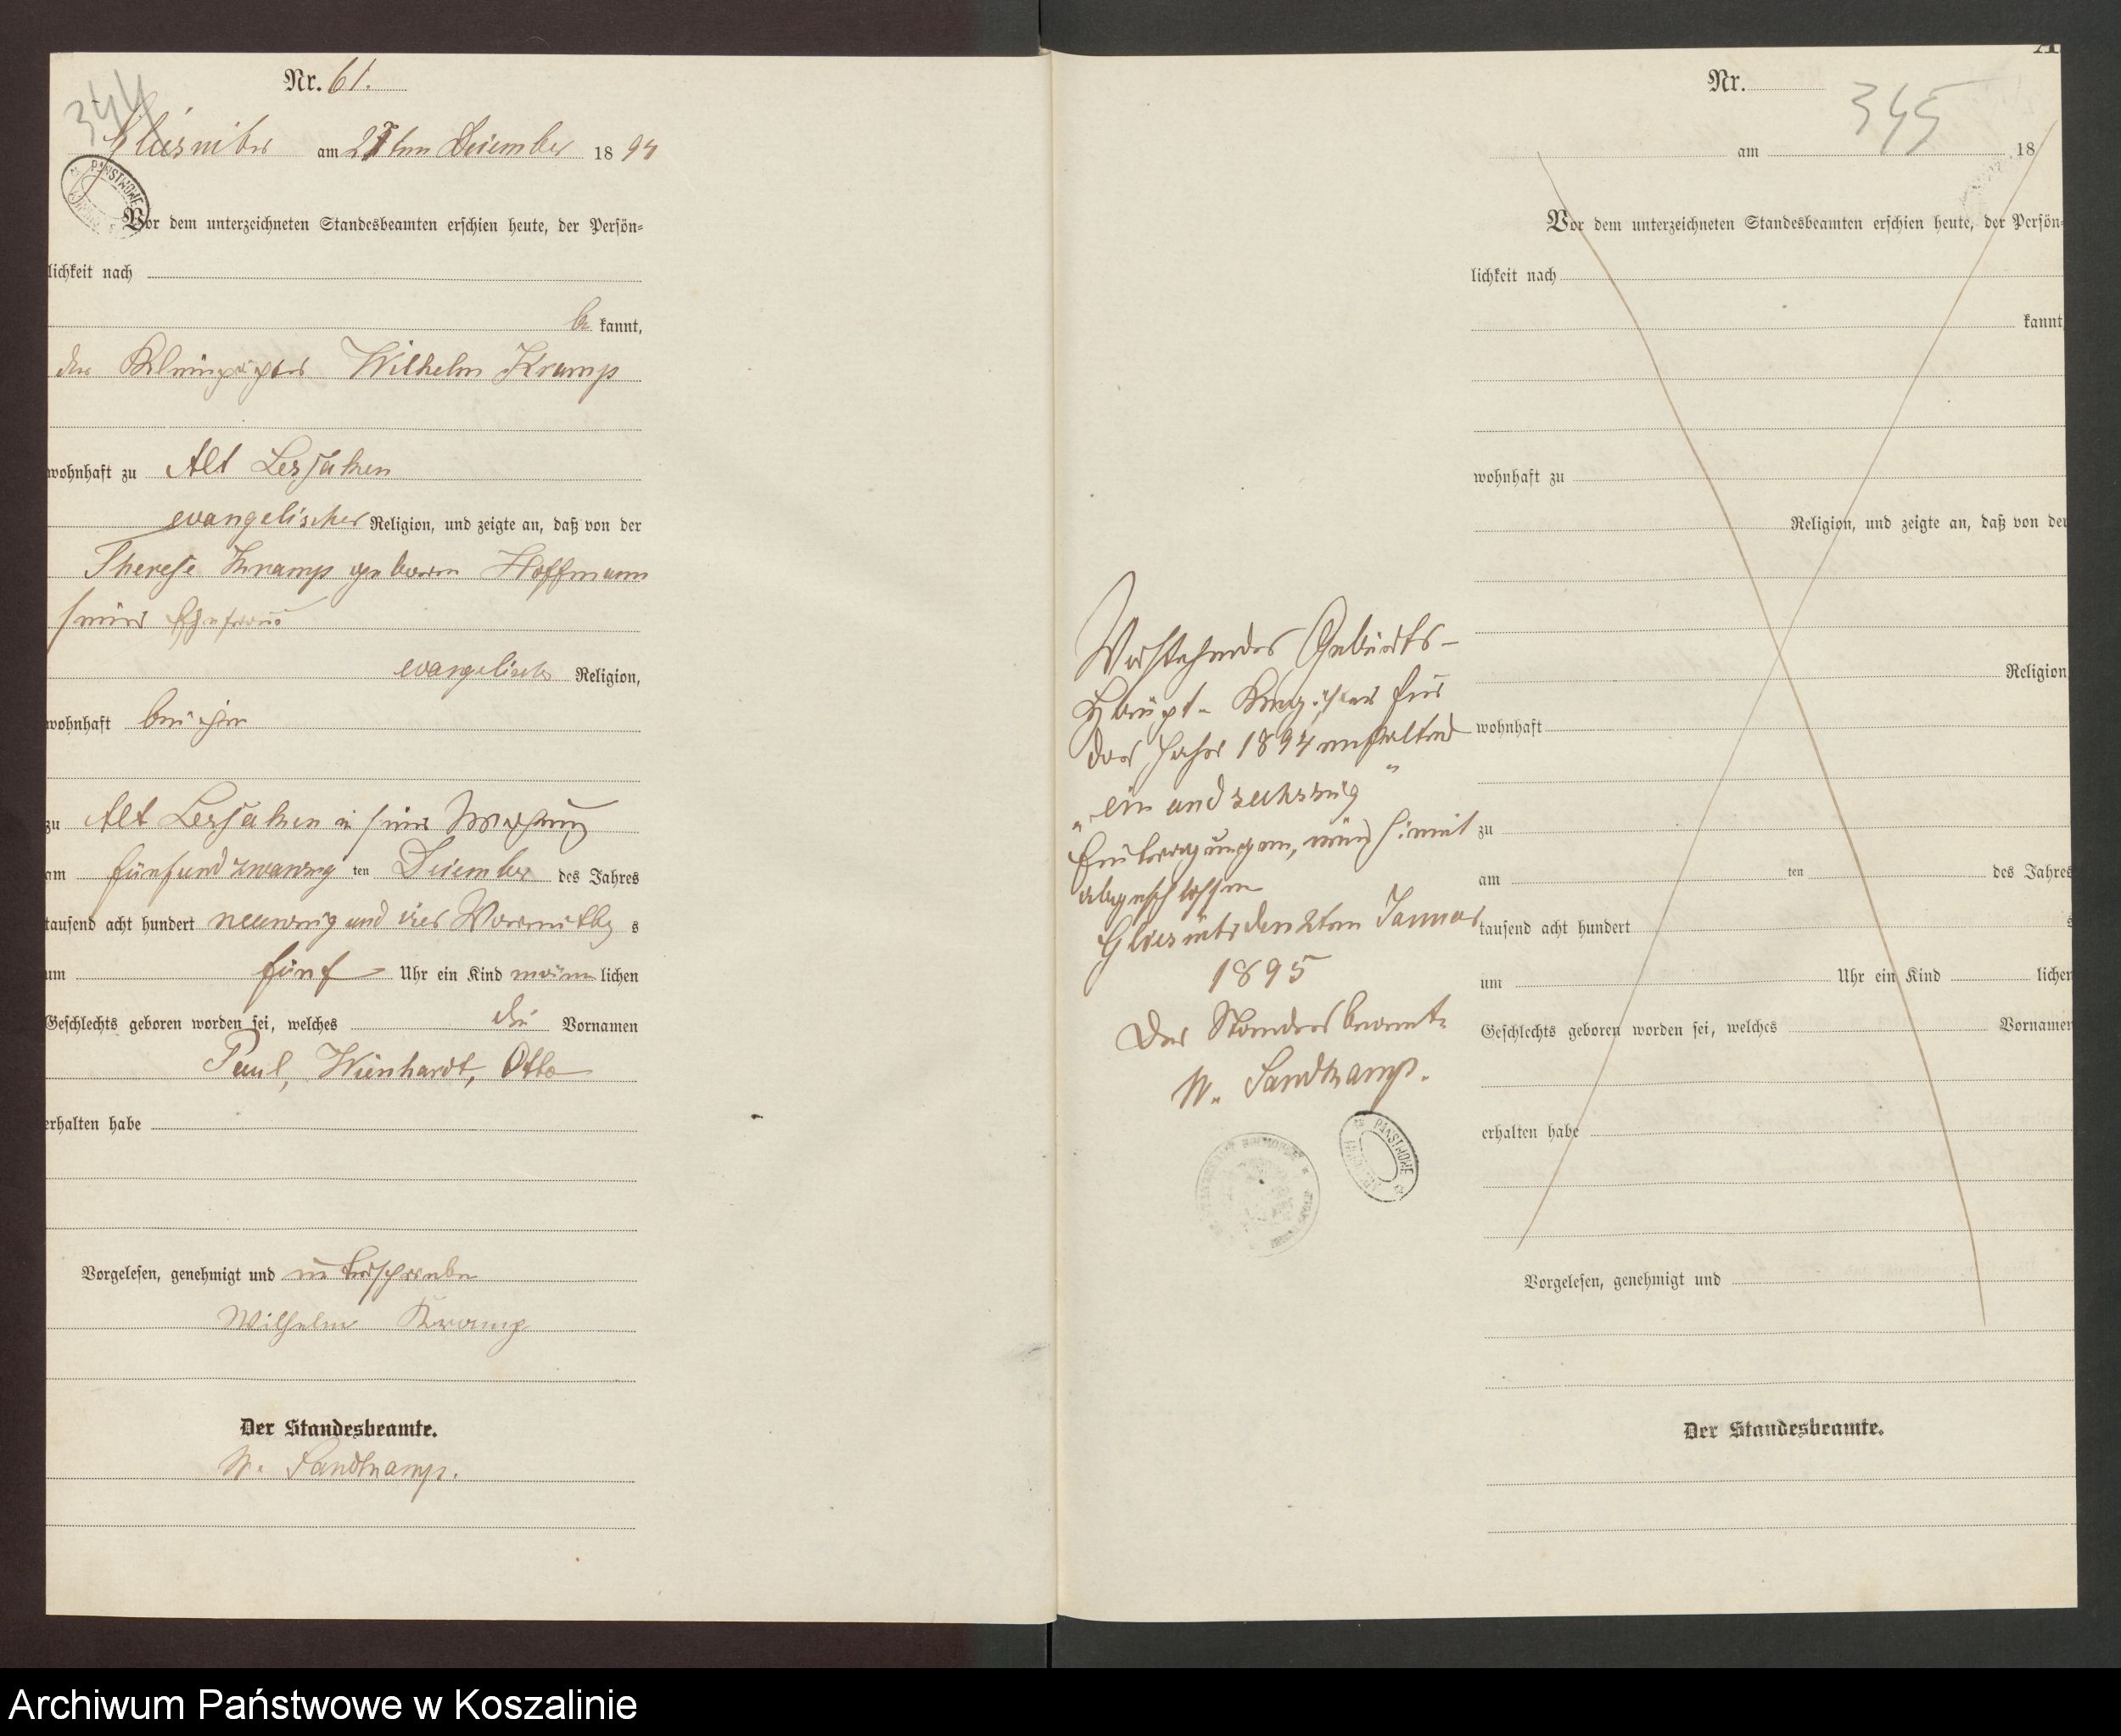 344
Nr. 61.
Gliesnitz am 27ten Dezember 1894
Vor dem unterzeichneten Standesbeamten erschien heute, der Persön=
lichkeit nach
be kannt,
der Wilhelm Kramp
wohnhaft zu Alt
evangelischer Religion, und zeigte an, daß von der
Therese Kramp geboren Hoffmann
seiner Ehefrau
evangelischer Religion,
wohnhaft bei ihm
zu Alt in seiner Wohnung
am fünfundzwanzig ten Dezember des Jahres
tausend acht hundert neunzig und vier Vormittag s
um fünf Uhr ein Kind männ lichen
Geschlechts geboren worden sei, welches die Vornamen
Paul, Wienhardt, Otto
erhalten habe
Vorgelesen, genehmigt und unterschrieben
Wilhelm Kramp
Der Standesbeamte.
W. Sandkamp.
Vorstehendes Geburts-
Haupt- Register für
das Jahr 1894 enthaltend
"ein und sechszig"
Eintragungen, wird hiermit
abgeschlossen
Gliesnitz den 2ten Januar
1895
Der Standesbeamte
W. Sandkamp.
PAŃSTWOWE
345
Nr.
am 18
Vor dem unterzeichneten Standesbeamten erschien heute, der Persön=
lichkeit nach
kannt
wohnhaft zu
Religion, und zeigte an, daß von der
Religion
wohnhaft
zu
am ten des Jahres
tausend acht hundert s
um Uhr ein Kind lichen
Geschlechts geboren worden sei, welches Vornamen
erhalten habe
Vorgelesen, genehmigt und
Der Standesbeamte.
Archiwum Państwowe w Koszalinie